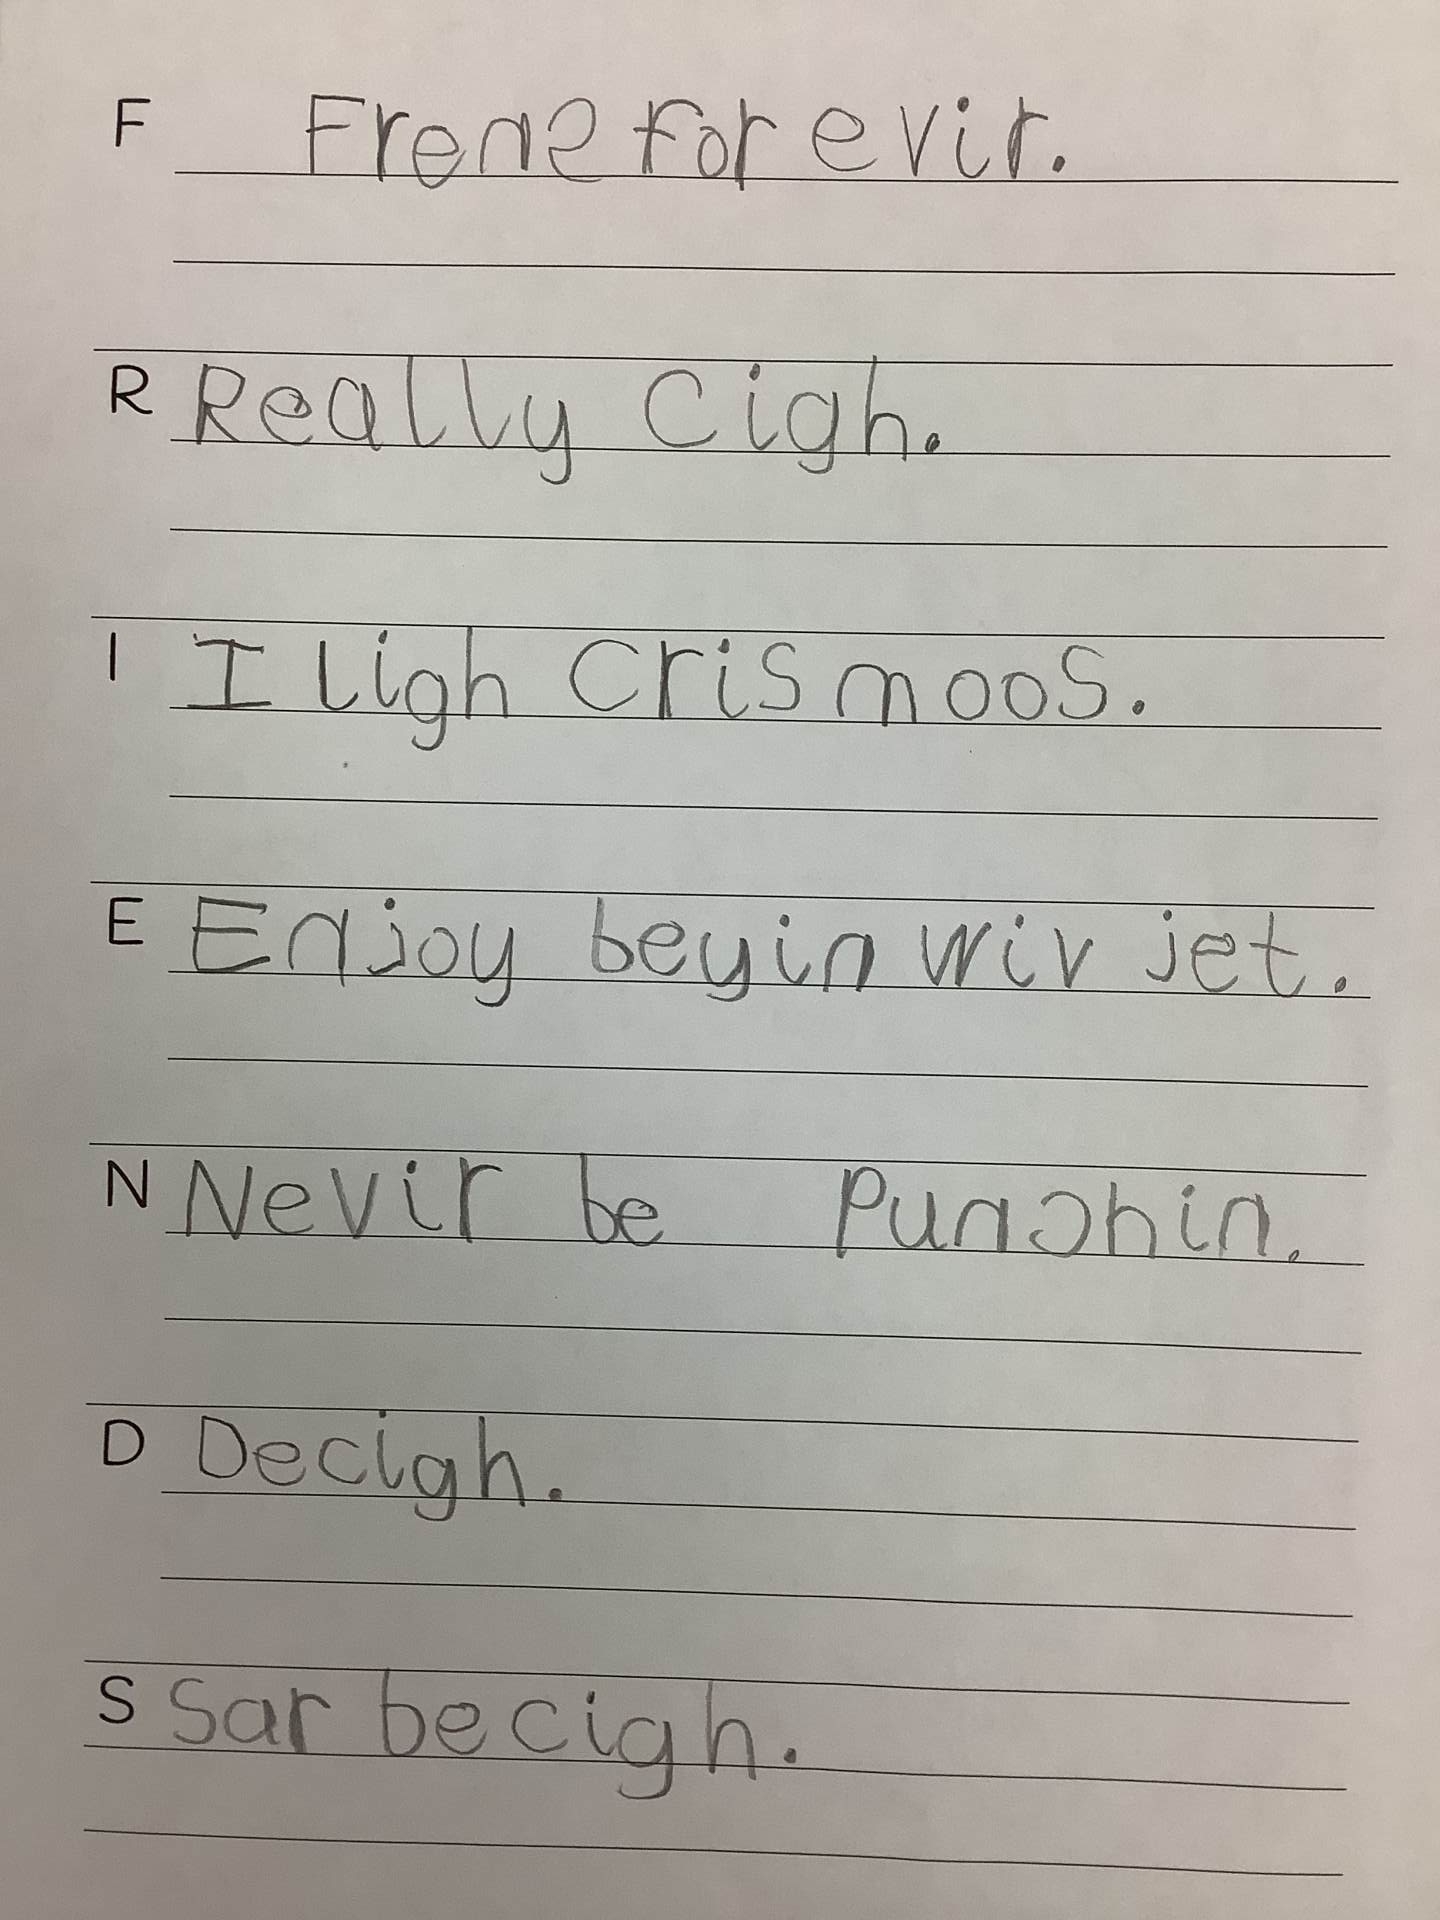 F Frens for evir.
R Really Cigh.
I I ligh Crismoos.
E Enjoy beyin wiv jet.
N Nevir be Punchin.
D Decigh.
S Sar be cigh.